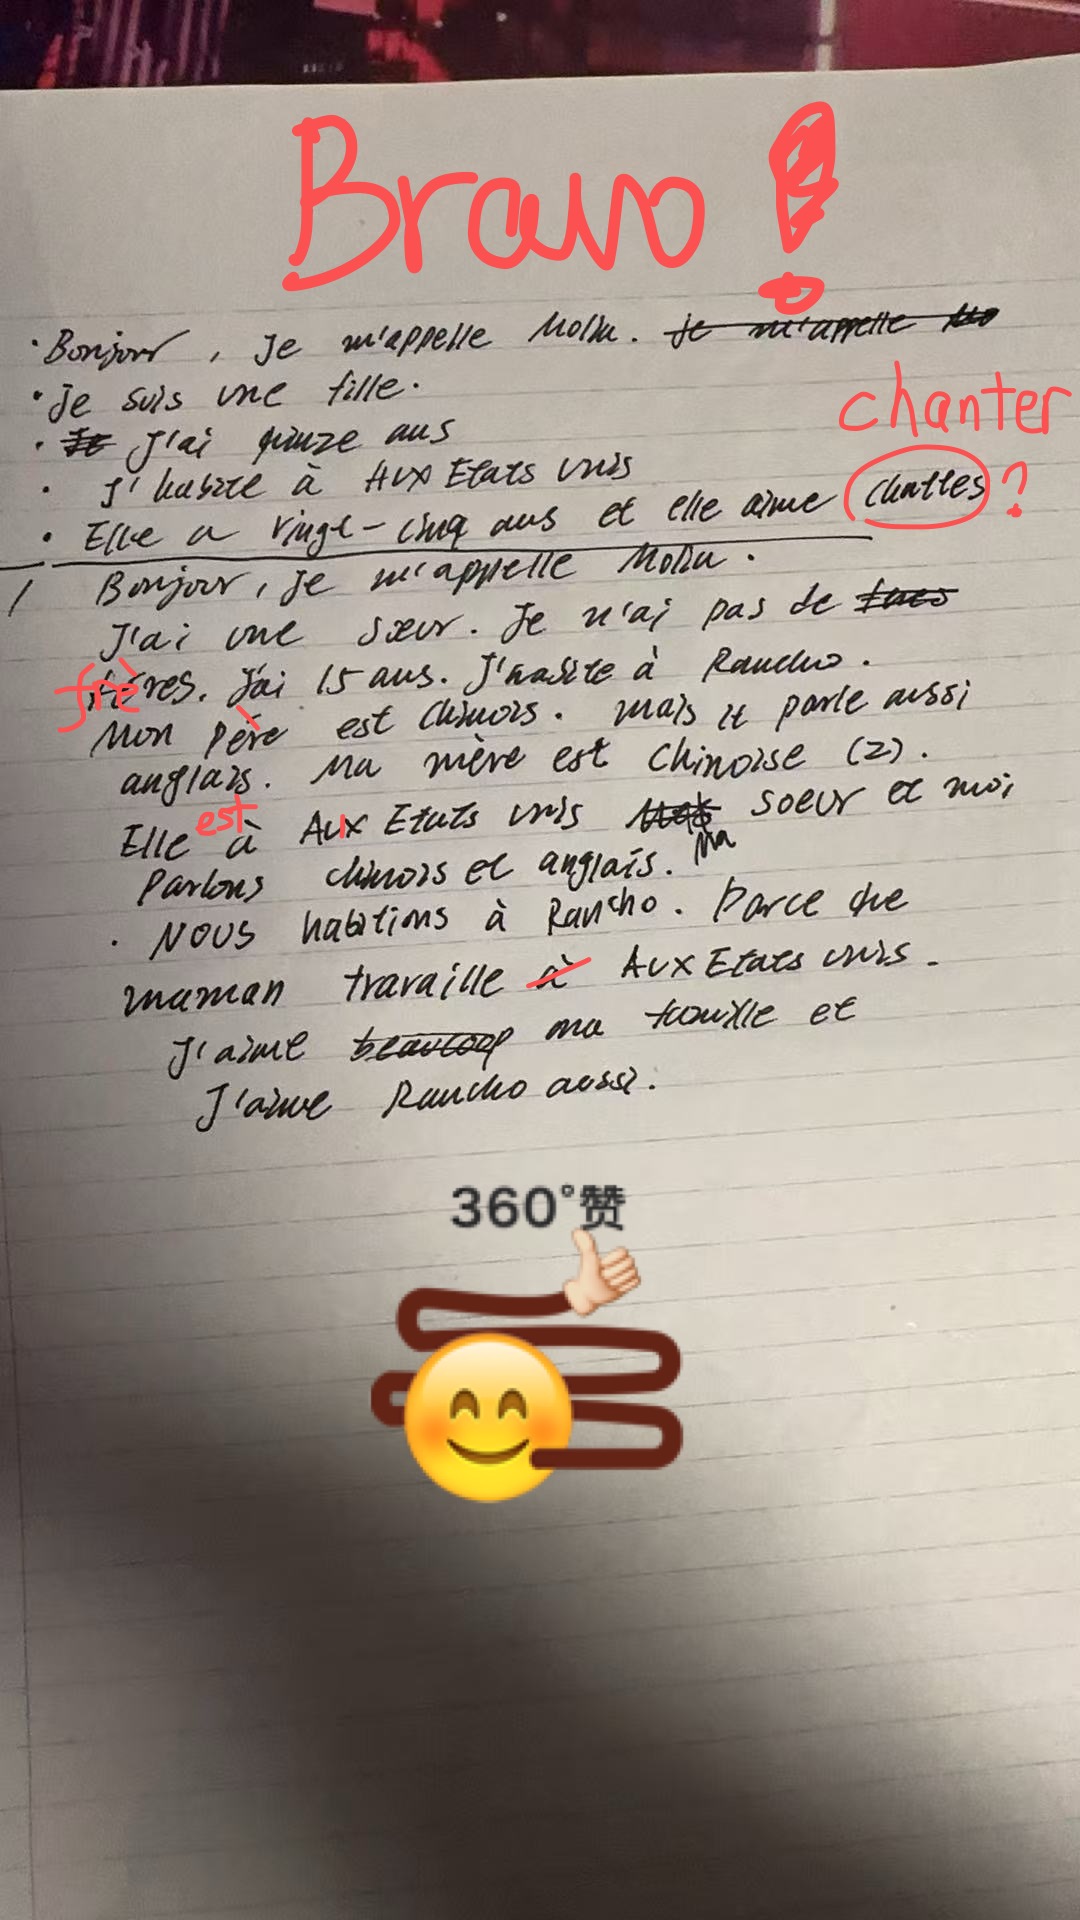 Bravo !
Bonjour, Je m'appelle Molin. je m'appelle Mo
Je suis une fille.
Je J'ai quinze ans
chanter
J'habite à AUX Etats unis
Elle a vingt-cinq ans et elle aime chattes ?
1 Bonjour, Je m'appelle Molin.
J'ai une sœur. Je n'ai pas de
frères. J'ai 15 ans. J'habite à Rancho.
Mon père est chinois. mais il parle aussi
anglais. Ma mère est Chinoise (2).
est
Elle à AUX Etats unis soeur et moi
Ma
Parlons chinois et anglais.
NOUS habitions à Rancho. Parce que
maman travaille à AUX Etats unis.
J'aime beaucoup ma famille et
J'aime Rancho aussi.
360°赞